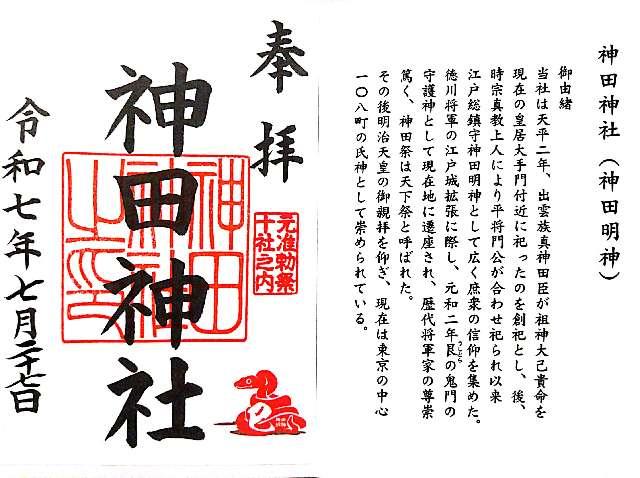 神田神社（神田明神）
御由緒
当社は天平二年、出雲族真神田臣が祖神大己貴命を
現在の皇居大手門付近に祀ったのを創祀とし、後、
時宗真教上人により平将門公が合わせ祀られ以来
江戸総鎮守神田明神として広く庶衆の信仰を集めた。
徳川将軍の江戸城拡張に際し、元和二年艮の鬼門の
うしとら
守護神として現在地に遷座され、歴代将軍家の尊崇
篤く、神田祭は天下祭と呼ばれた。
その後明治天皇の御親拝を仰ぎ、現在は東京の中心
一〇八町の氏神として崇められている。
奉拝
元准勅祭
十社之内
神田神社
神田
神社
之印
令和七年七月二十七日